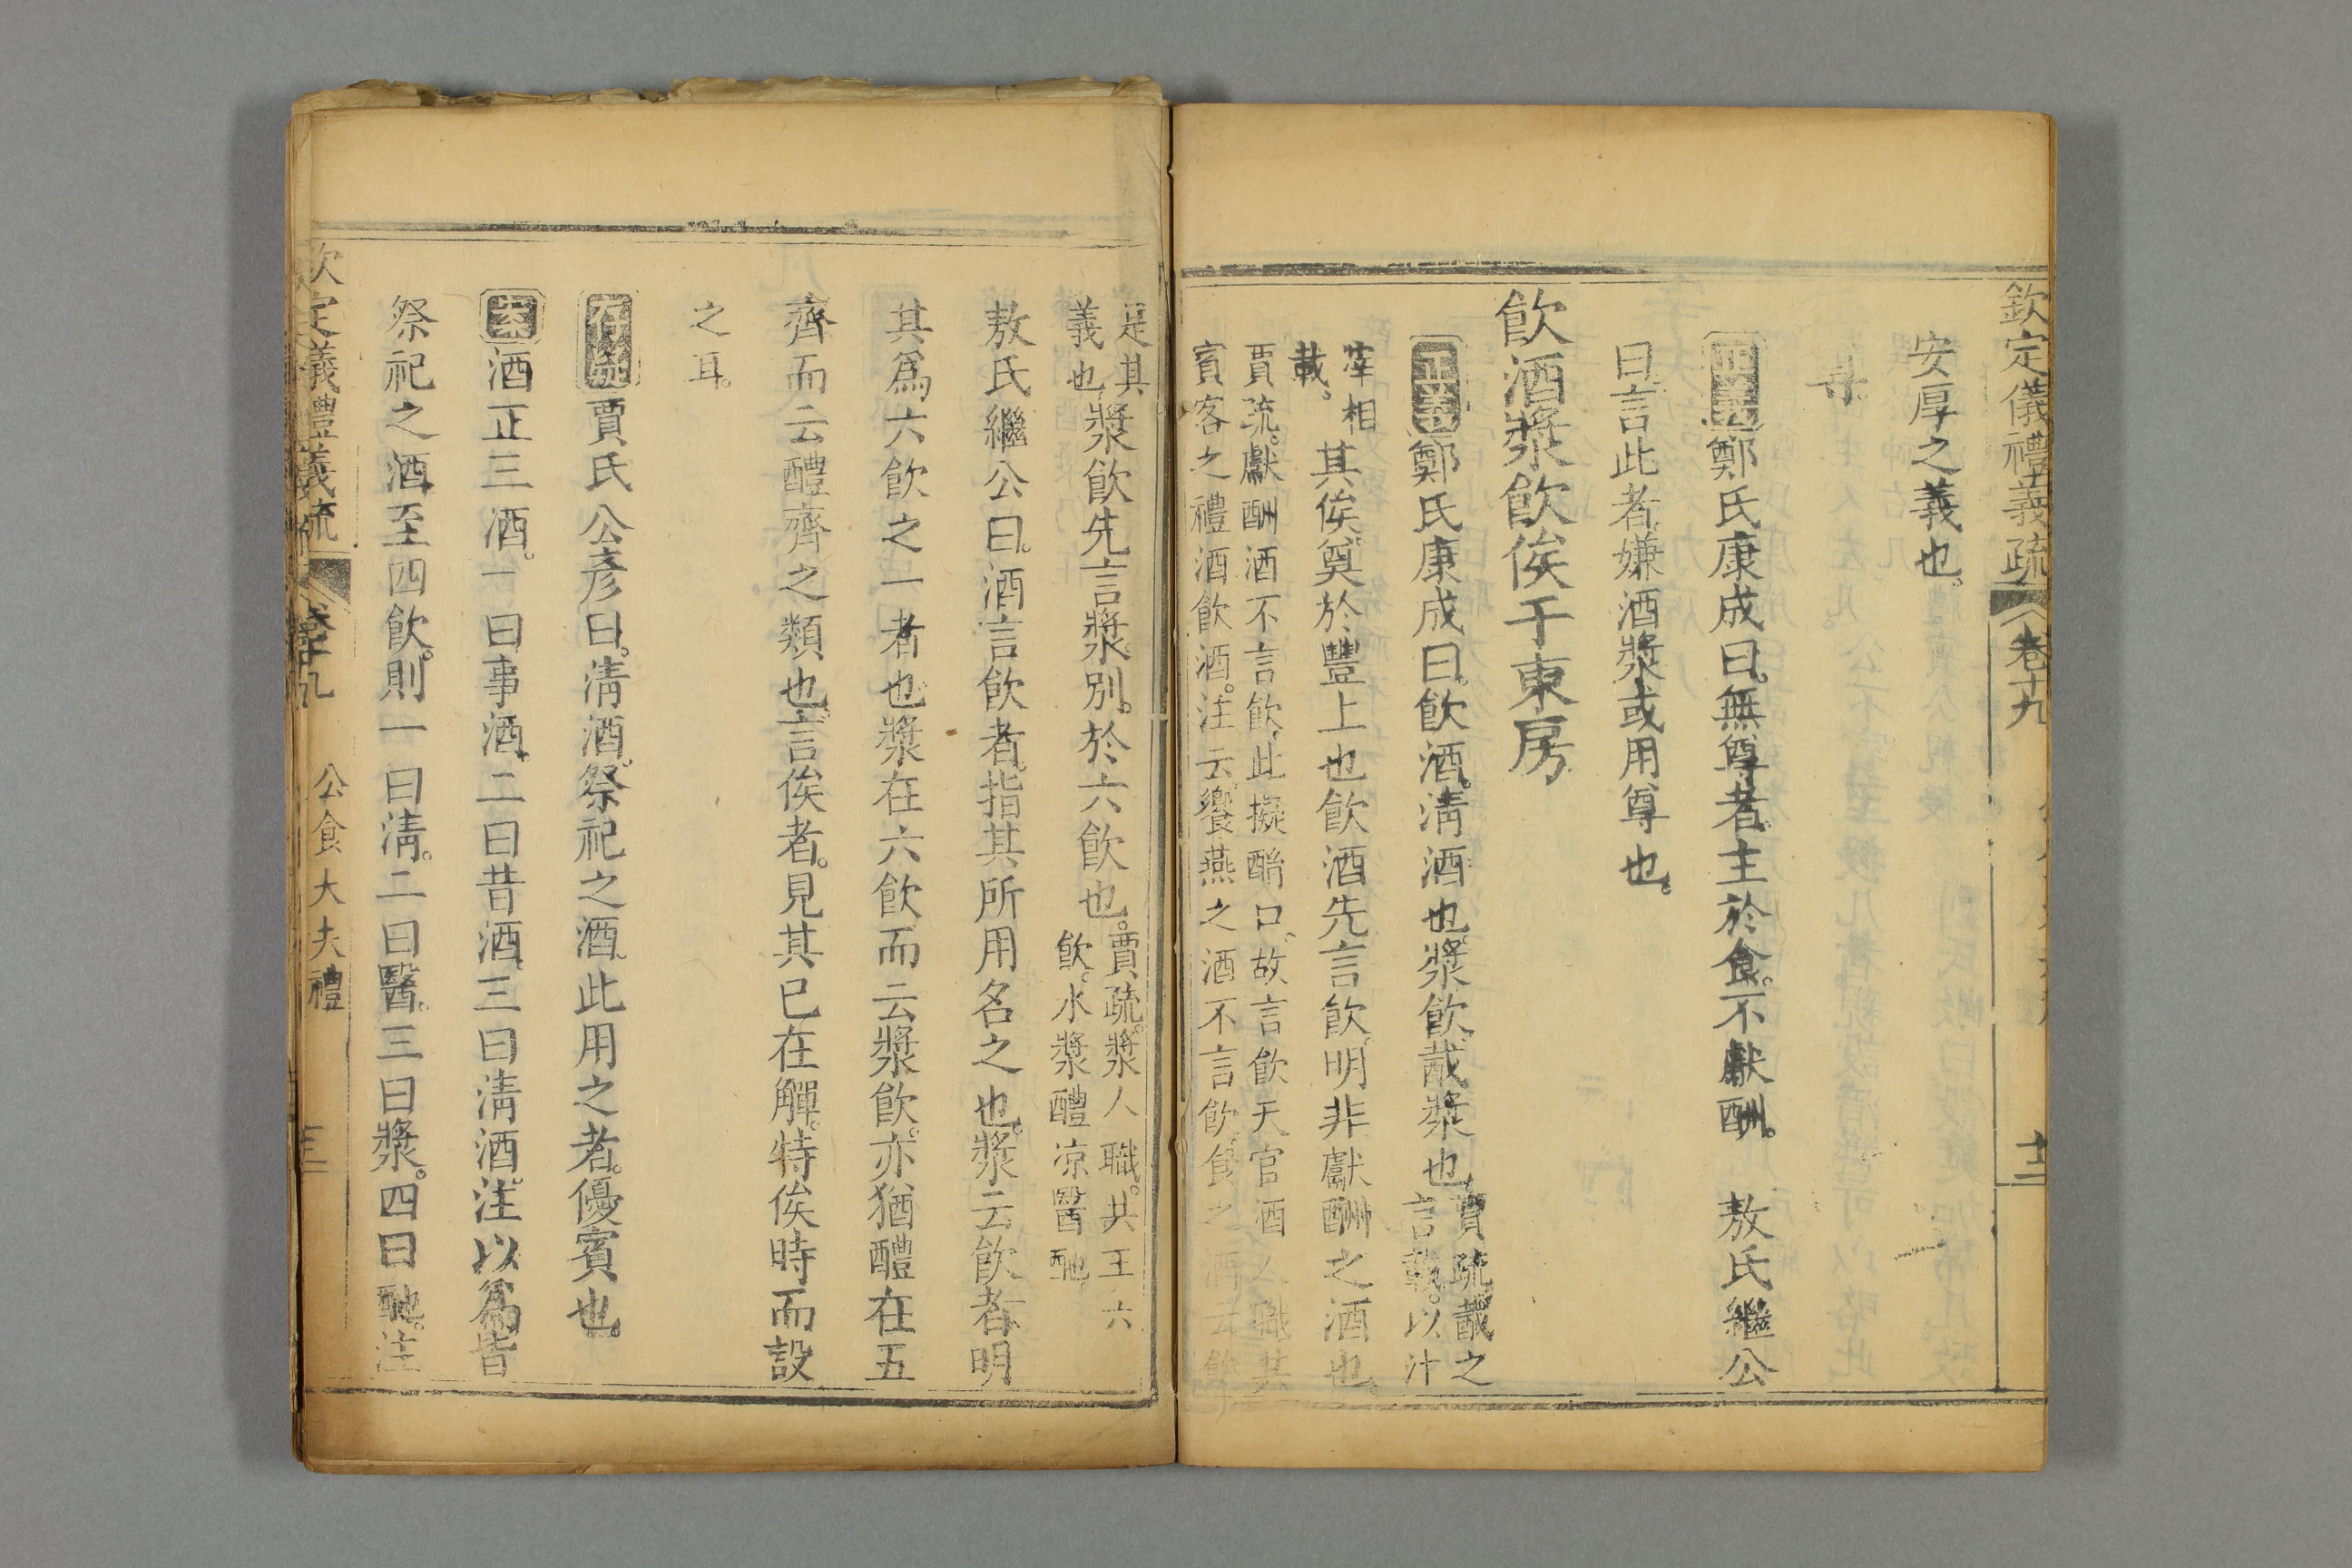 欽定儀禮義疏 卷十九 十三
安厚之義也。
正義鄭氏康成曰。無尊者。主於食。不獻酬。 敖氏繼公
曰。言此者。嫌酒漿或用尊也。
飲酒漿飲俟于東房
正義鄭氏康成曰。飲酒。清酒也。漿飲。酨漿也。
賈疏。酨之
言載。以汁
滓相
載。
其俟。奠於豐上也。飲酒先言飲。明非獻酬之酒也。
賈疏。獻酬酒不言飲。此擬酳口。故言飲。天官酒人職。共
賓客之禮酒飲酒。注云。饗燕之酒不言飲。食之酒云飲。
足其
義也。
漿飲先言漿。別於六飲也。
賈疏。漿人職。共王六
飲。水漿醴涼醫酏。
敖氏繼公曰。酒言飲者。指其所用名之也。漿云飲者。明
其爲六飲之一者也。漿在六飲。而云漿飲。亦猶醴在五
齊而云醴齊之類也。言俟者。見其已在觶。特俟時而設
之耳。
存疑賈氏公彥曰。清酒。祭祀之酒。此用之者。優賓也。
案酒正三酒。一曰事酒。二曰昔酒。三曰清酒。注以爲皆
祭祀之酒。至四飲。則一曰清。二曰醫。三曰漿。四曰酏。注
欽定儀禮義疏 卷十九 公食大夫禮